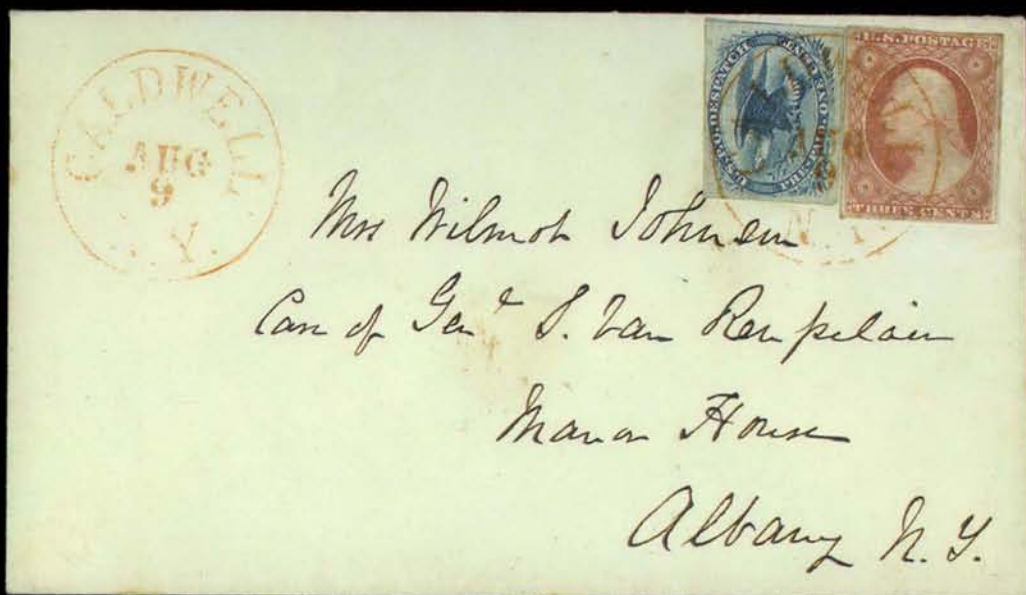 CALDWELL
AUG
9
. Y.
U.S.P.O. DESPATCH
PRE-PAID ONE CENT
U.S. POSTAGE
THREE CENTS
AUG
N.Y.
Mrs Wilmot Johnson
Care of Genl S. Van Rensselaer
Manor House
Albany N.Y.